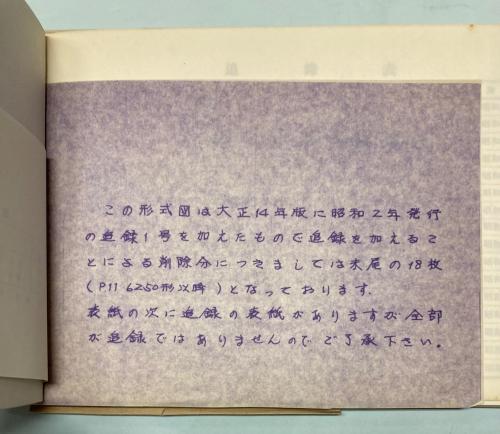 この形式図は大正14年版に昭和2年発行
の追録1号を加えたもので追録を加えるこ
とによる削除分につきましては末尾の18枚
(P11 6250形以降)となっております.
表紙の次に追録の表紙がありますが全部
が追録ではありませんのでご了承下さい。